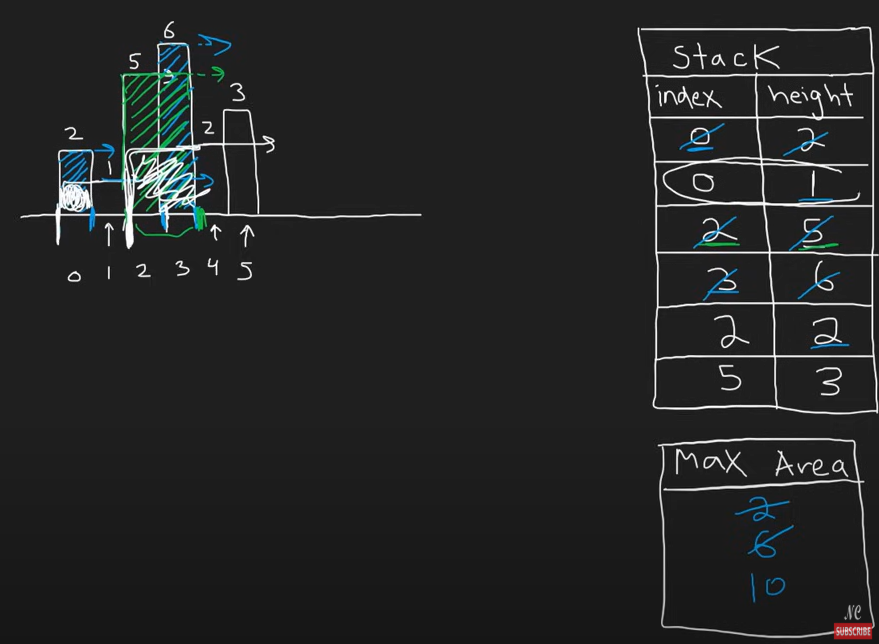 6
5
3
2
2
1
0 1 2 3 4 5
Stack
index height
0 2
0 1
2 5
3 6
2 2
5 3
Max Area
2
6
10
NC
SUBSCRIBE